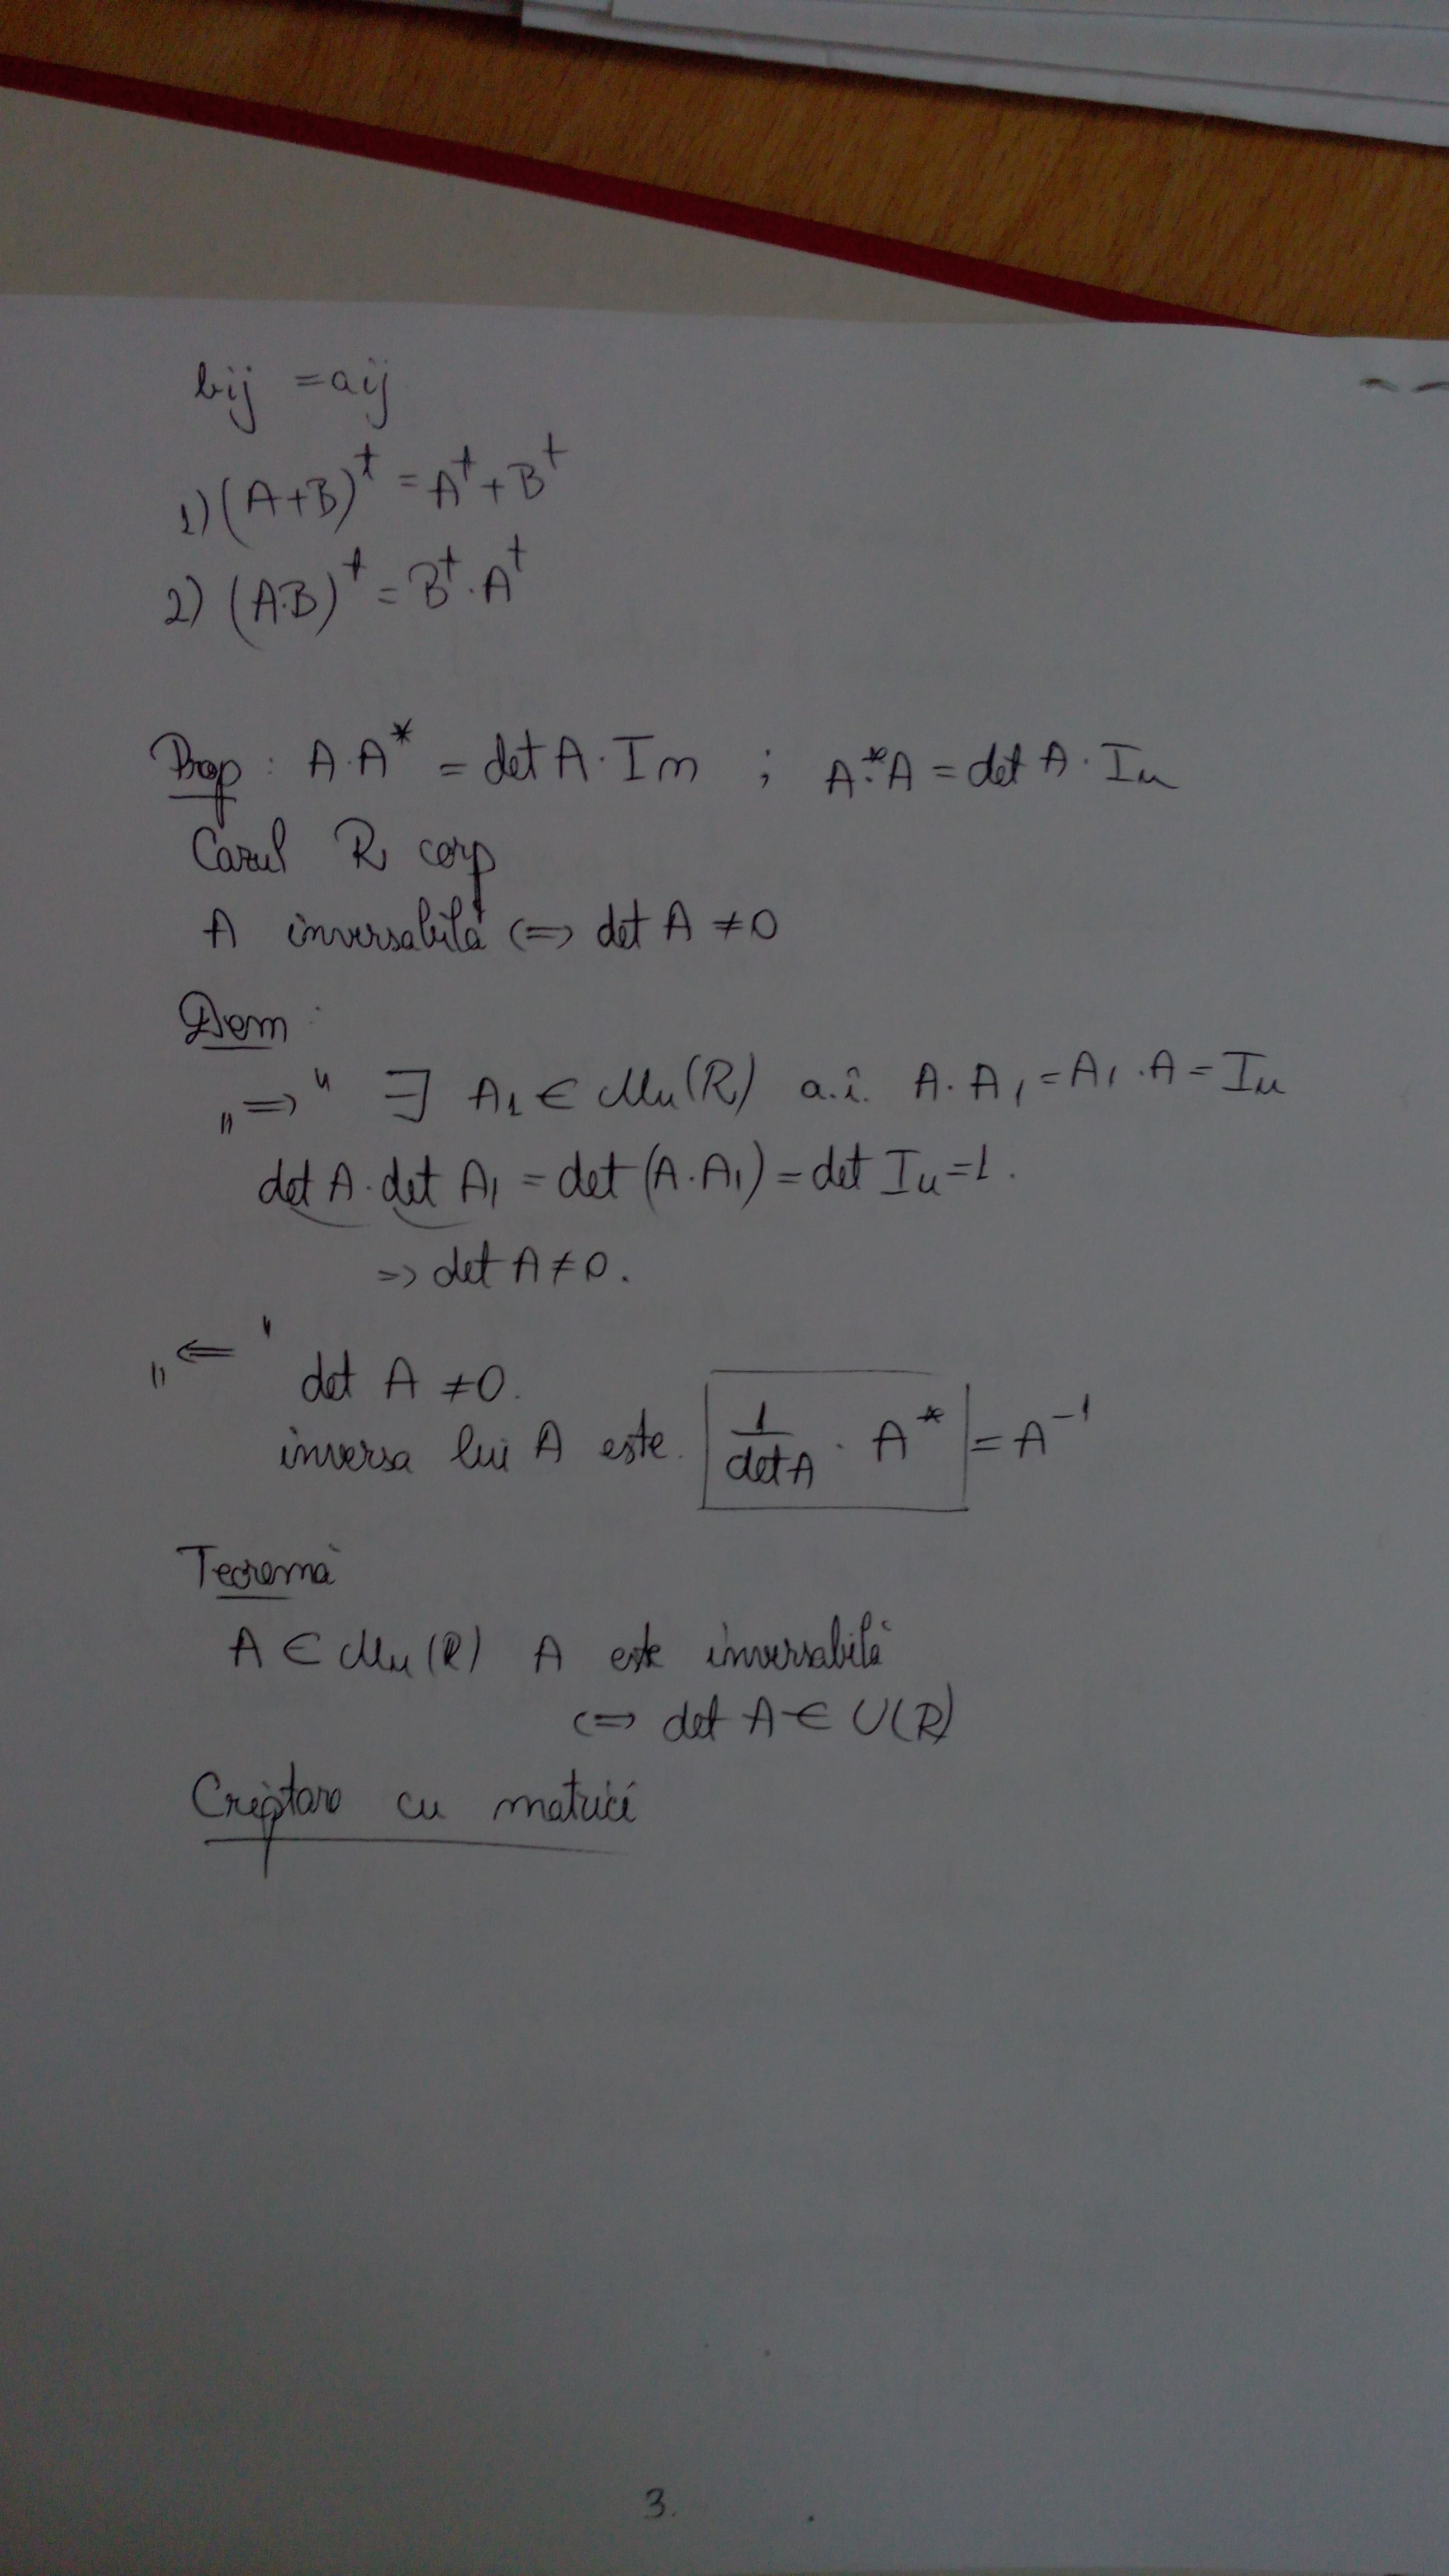 bij = aij
1) (A+B)^t = A^t + B^t
2) (A·B)^t = B^t · A^t
Prop : A·A* = det A · In ; A*·A = det A · In
Cazul R corp
A inversabilă <=> det A ≠ 0
Dem :
„=>" ∃ A1 ∈ Mn(R) a.î. A·A1 = A1·A = In
det A · det A1 = det (A·A1) = det In = 1.
=> det A ≠ 0.
„<=" det A ≠ 0.
inversa lui A este 1/det A · A* = A^-1
Teoremă
A ∈ Mn(R) A este inversabilă
<=> det A ∈ U(R)
Criptare cu matrici
3.